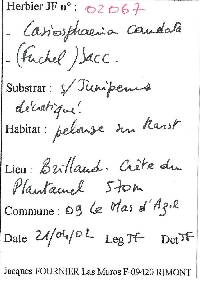 Herbier JF n° : 02067
- Lasiosphaeria caudata
- (Fuckel) Sacc.
Substrat : s/ Juniperus
décortiqué.
Habitat : pelouse sur Karst
Lieu : Brilland. Crête du
Plantaurel 570m
Commune : 09 Le Mas d'Azil
Date 21/04/02 Leg JF Det JF
Jacques FOURNIER Las Muros F-09420 RIMONT